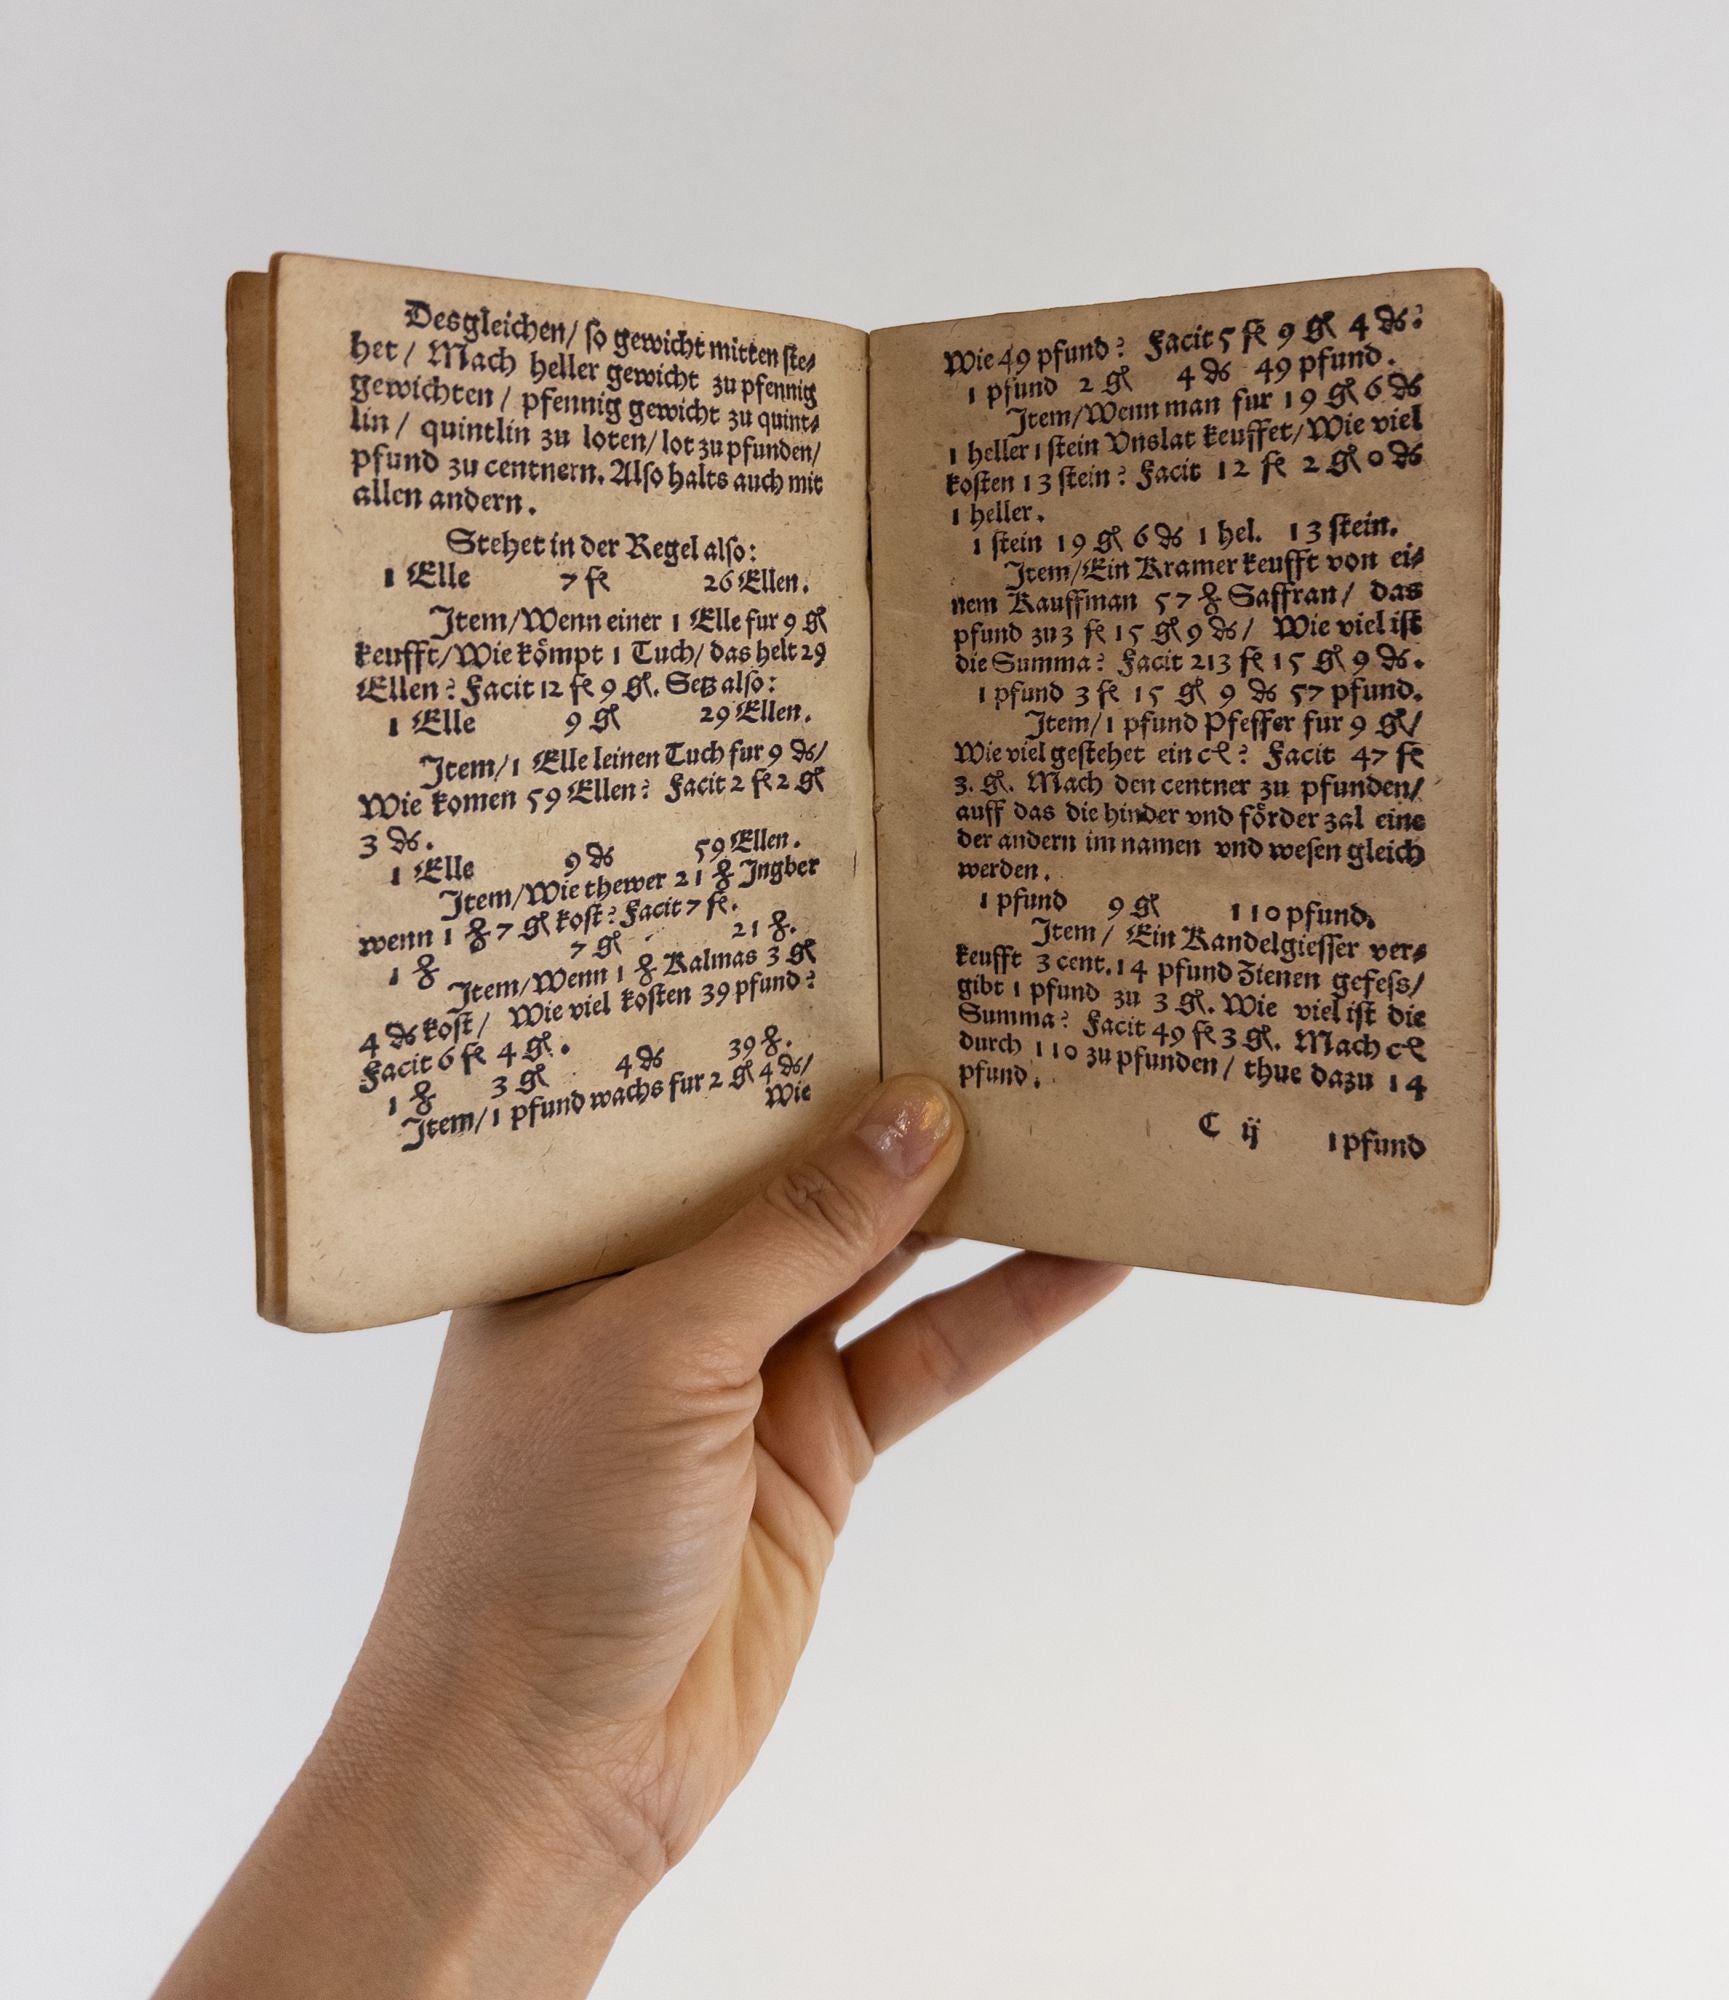 Desgleichen/ so gewicht mitten ste⸗
het / Mach heller gewicht zu pfennig
gewichten / pfennig gewicht zu quint⸗
lin / quintlin zu loten/ lot zu pfunden/
pfund zu centnern. Also halts auch mit
allen andern.
Stehet in der Regel also:
1 Elle 7 fl 26 Ellen.
Item/Wenn einer 1 Elle fur 9 gl
keufft/Wie kömpt 1 Tuch/ das helt 29
Ellen? Facit 12 fl 9 gl. Setz also:
1 Elle 9 gl 29 Ellen.
Item/1 Elle leinen Tuch fur 9 ₰/
Wie komen 59 Ellen? Facit 2 fl 2 gl
3 ₰.
1 Elle 9 ₰ 59 Ellen.
Item/Wie thewer 21 ℔ Ingber
wenn 1 ℔ 7 gl kost? Facit 7 fl.
1 ℔ 7 gl 21 ℔.
Item/Wenn 1 ℔ Kalmas 3 gl
4 ₰ kost/ Wie viel kosten 39 pfund?
Facit 6 fl 4 gl.
1 ℔ 3 gl 4 ₰ 39 ℔.
Item/1 pfund wachs fur 2 gl 4 ₰/
Wie
Wie 49 pfund? Facit 5 fl 9 gl 4 ₰.
1 pfund 2 gl 4 ₰ 49 pfund.
Item/Wenn man fur 19 gl 6 ₰
1 heller 1 stein Vnslat keuffet/Wie viel
kosten 13 stein? Facit 12 fl 2 gl 0 ₰
1 heller.
1 stein 19 gl 6 ₰ 1 hel. 13 stein.
Item/Ein Kramer keufft von ei⸗
nem Kauffman 57 ℔ Saffran/ das
pfund zu 3 fl 15 gl 9 ₰/ Wie viel ist
die Summa? Facit 213 fl 15 gl 9 ₰.
1 pfund 3 fl 15 gl 9 ₰ 57 pfund.
Item/1 pfund Pfeffer fur 9 gl/
Wie viel gestehet ein ct? Facit 47 fl
3. gl. Mach den centner zu pfunden/
auff das die hinder vnd förder zal eine
der andern im namen vnd wesen gleich
werden.
1 pfund 9 gl 110 pfund.
Item/ Ein Kandelgiesser ver⸗
keufft 3 cent. 14 pfund Zienen gefess/
gibt 1 pfund zu 3 gl. Wie viel ist die
Summa? Facit 49 fl 3 gl. Mach ct
durch 110 zu pfunden/ thue dazu 14
pfund.
C ij 1 pfund